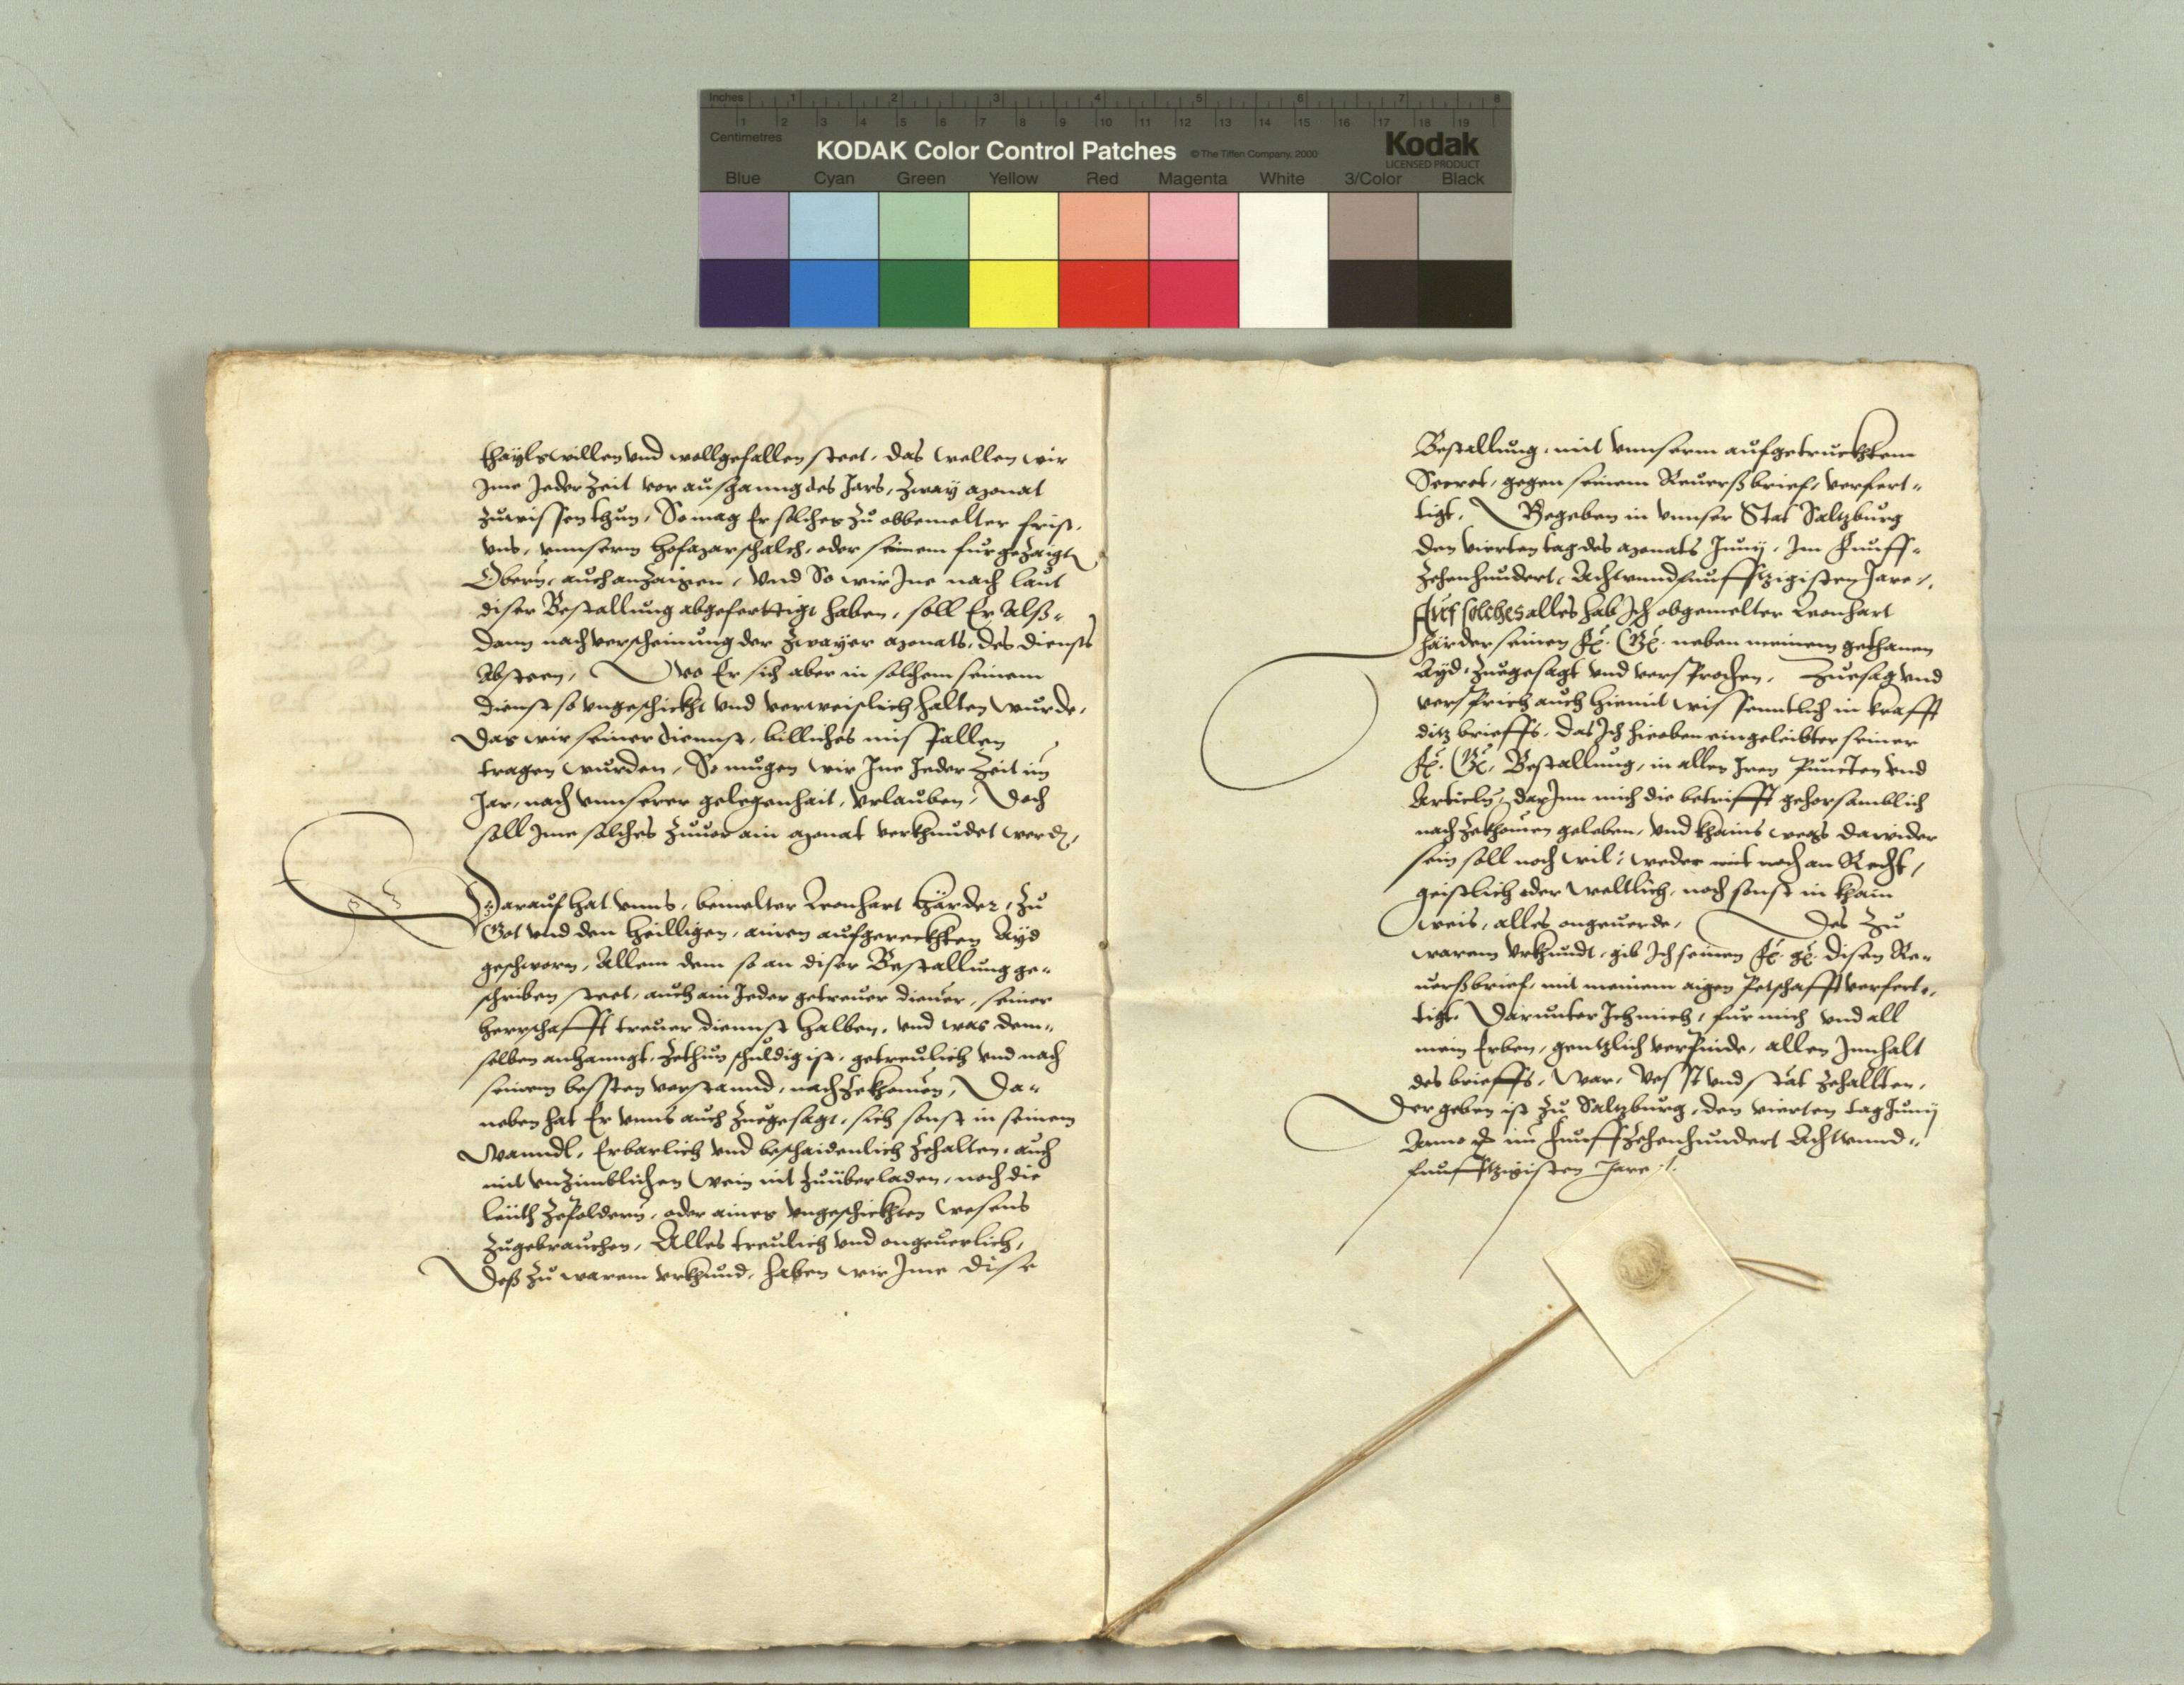 Inches 1 2 3 4 5 6 7 8
1 2 3 4 5 6 7 8 9 10 11 12 13 14 15 16 17 18 19
Centimetres
KODAK Color Control Patches © The Tiffen Company, 2000 Kodak
LICENSED PRODUCT
Blue Cyan Green Yellow Red Magenta White 3/Color Black
thayls willen vnd wollgefallen steet, das wellen wir
Ime Jeder Zeit vor außganng des Jars, Zway monat
Zuwissen thun, So mag Er solches Zu obbemelter frist,
vns, vnnserm hofmarschalch, oder seinem furgezaigtn
Obern, auch anzaigen, Vnd So wir Ine nach laut
diser Bestallung abgeferttigt haben, soll Er Alß-
dann nach verscheinung der Zwayer monats, des diensts
Absteen, Wo Er sich aber in solchem seinem
dienst so vngeschickht vnd verweislich halten wurde,
Das wir seiner diennst, billiches misfallen
tragen wurden, So mugen wir Ine Jeder Zeit im
Jar, nach vnnserer gelegenhait, vrlauben, Doch
soll Ime solches Zuuor ain monat verkhundet werdn,
Darauf hat vnns, bemelter Leonhart Härder, Zu
Got vnd den heilligen, ainen aufgereckhten Ayd
geschworn, Allem dem so an diser Bestallung ge-
schriben steet, auch ain Jeder getreuer diener, seiner
herrschafft treuer diennst halben, vnd was dem-
selben anhanngt, Zethun schuldig ist, getreulich vnd nach
seinem bessten verstannd, nach Zekhomen, Da-
neben hat Er vnns auch Zuegesagt, sich sonst in seinem
Wanndl, Erbarlich vnd beschaidenlich Zehalten, auch
mit vnzimblichen wein nit Zuüberladen, noch die
leüth Zepoldern, oder aines vngeschickhten wesens
Zugebrauchen, Alles treulich vnd ongeuerlich,
Deß Zu warem vrkhund, haben wir Ime dise
Bestallung, mit vnnserm aufgetruckhtem
Secret, gegen seinem Reuerßbrief, verfert-
tigt, Gegeben in vnnser Stat Saltzburg
den vierten tag des monats Junij, Im Funff-
Zehenhundert, Achtvnndfunfftzigisten Jare /.
Auf solches alles hab Ich obgemelter Leonhart
härder seinen Fr. Gr. neben meinem gethanen
Ayd, Zuegesagt vnd versprochen, Zuesag vnd
versprich auch hiemit wissenntlich in krafft
ditz brieffs, das Ich hieoben eingeleibter seiner
Fr. Gr. Bestallung, in allen Iren Puncten vnd
Articln, darJnn mich die betrifft gehorsamblich
nach Zekhomen geleben, vnd khains wegs dawider
sein soll noch wil, weder mit noch an Recht,
geistlich oder weltlich, noch sonst in khain
weis, alles ongeuerde, Des Zu
warem vrkhundt, gib Ich seinen Fr. gr. disen Re-
uerßbrief, mit meinem aigen Petschafft verfert-
tigt, Darunter Ich mich, fur mich vnd all
mein Erben, gentzlich verpinde, allen Innhalt
des brieffs, War, Vesst vnd stät Zehallten,
Der geben ist Zu Saltzburg, den vierten tag Junij
Anno im Funffzehenhundert Achtvnnd-
funfftzigisten Jare /.